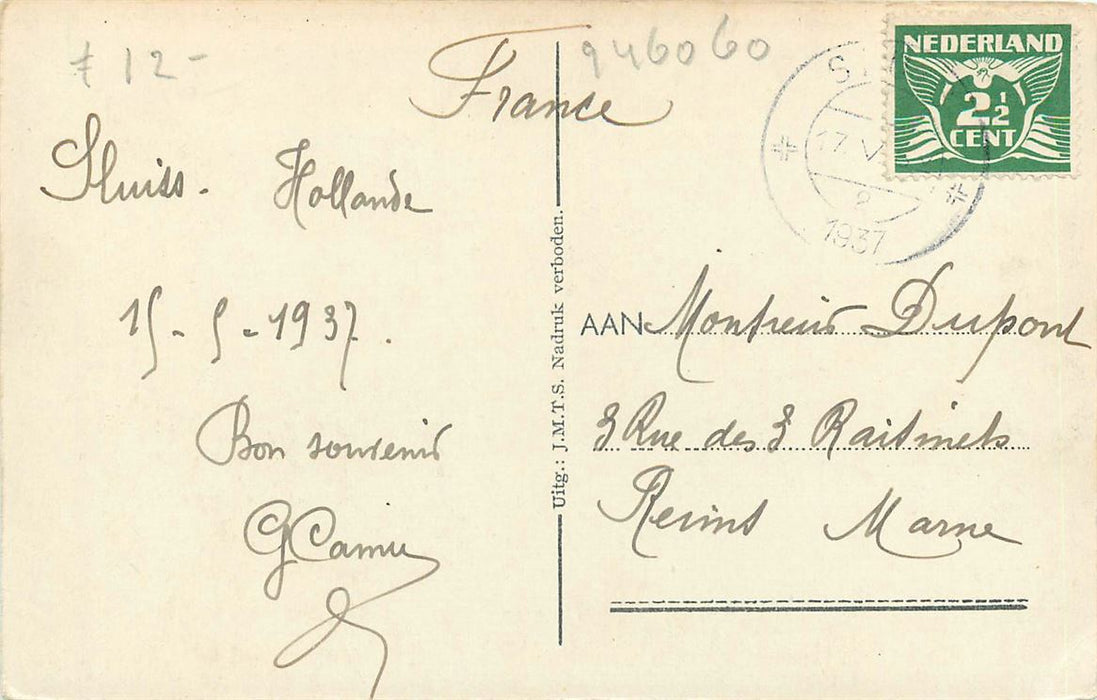 € 12-
946060
France
Sluiss. Hollande
15-5-1937.
Bon souvenir
GCamu
Uitg.: J.M.T.S. Nadruk verboden.
NEDERLAND
2½
CENT
17 V
2
1937
AAN Monsieur Dupont
3 Rue des 3 Raisinets
Reims Marne